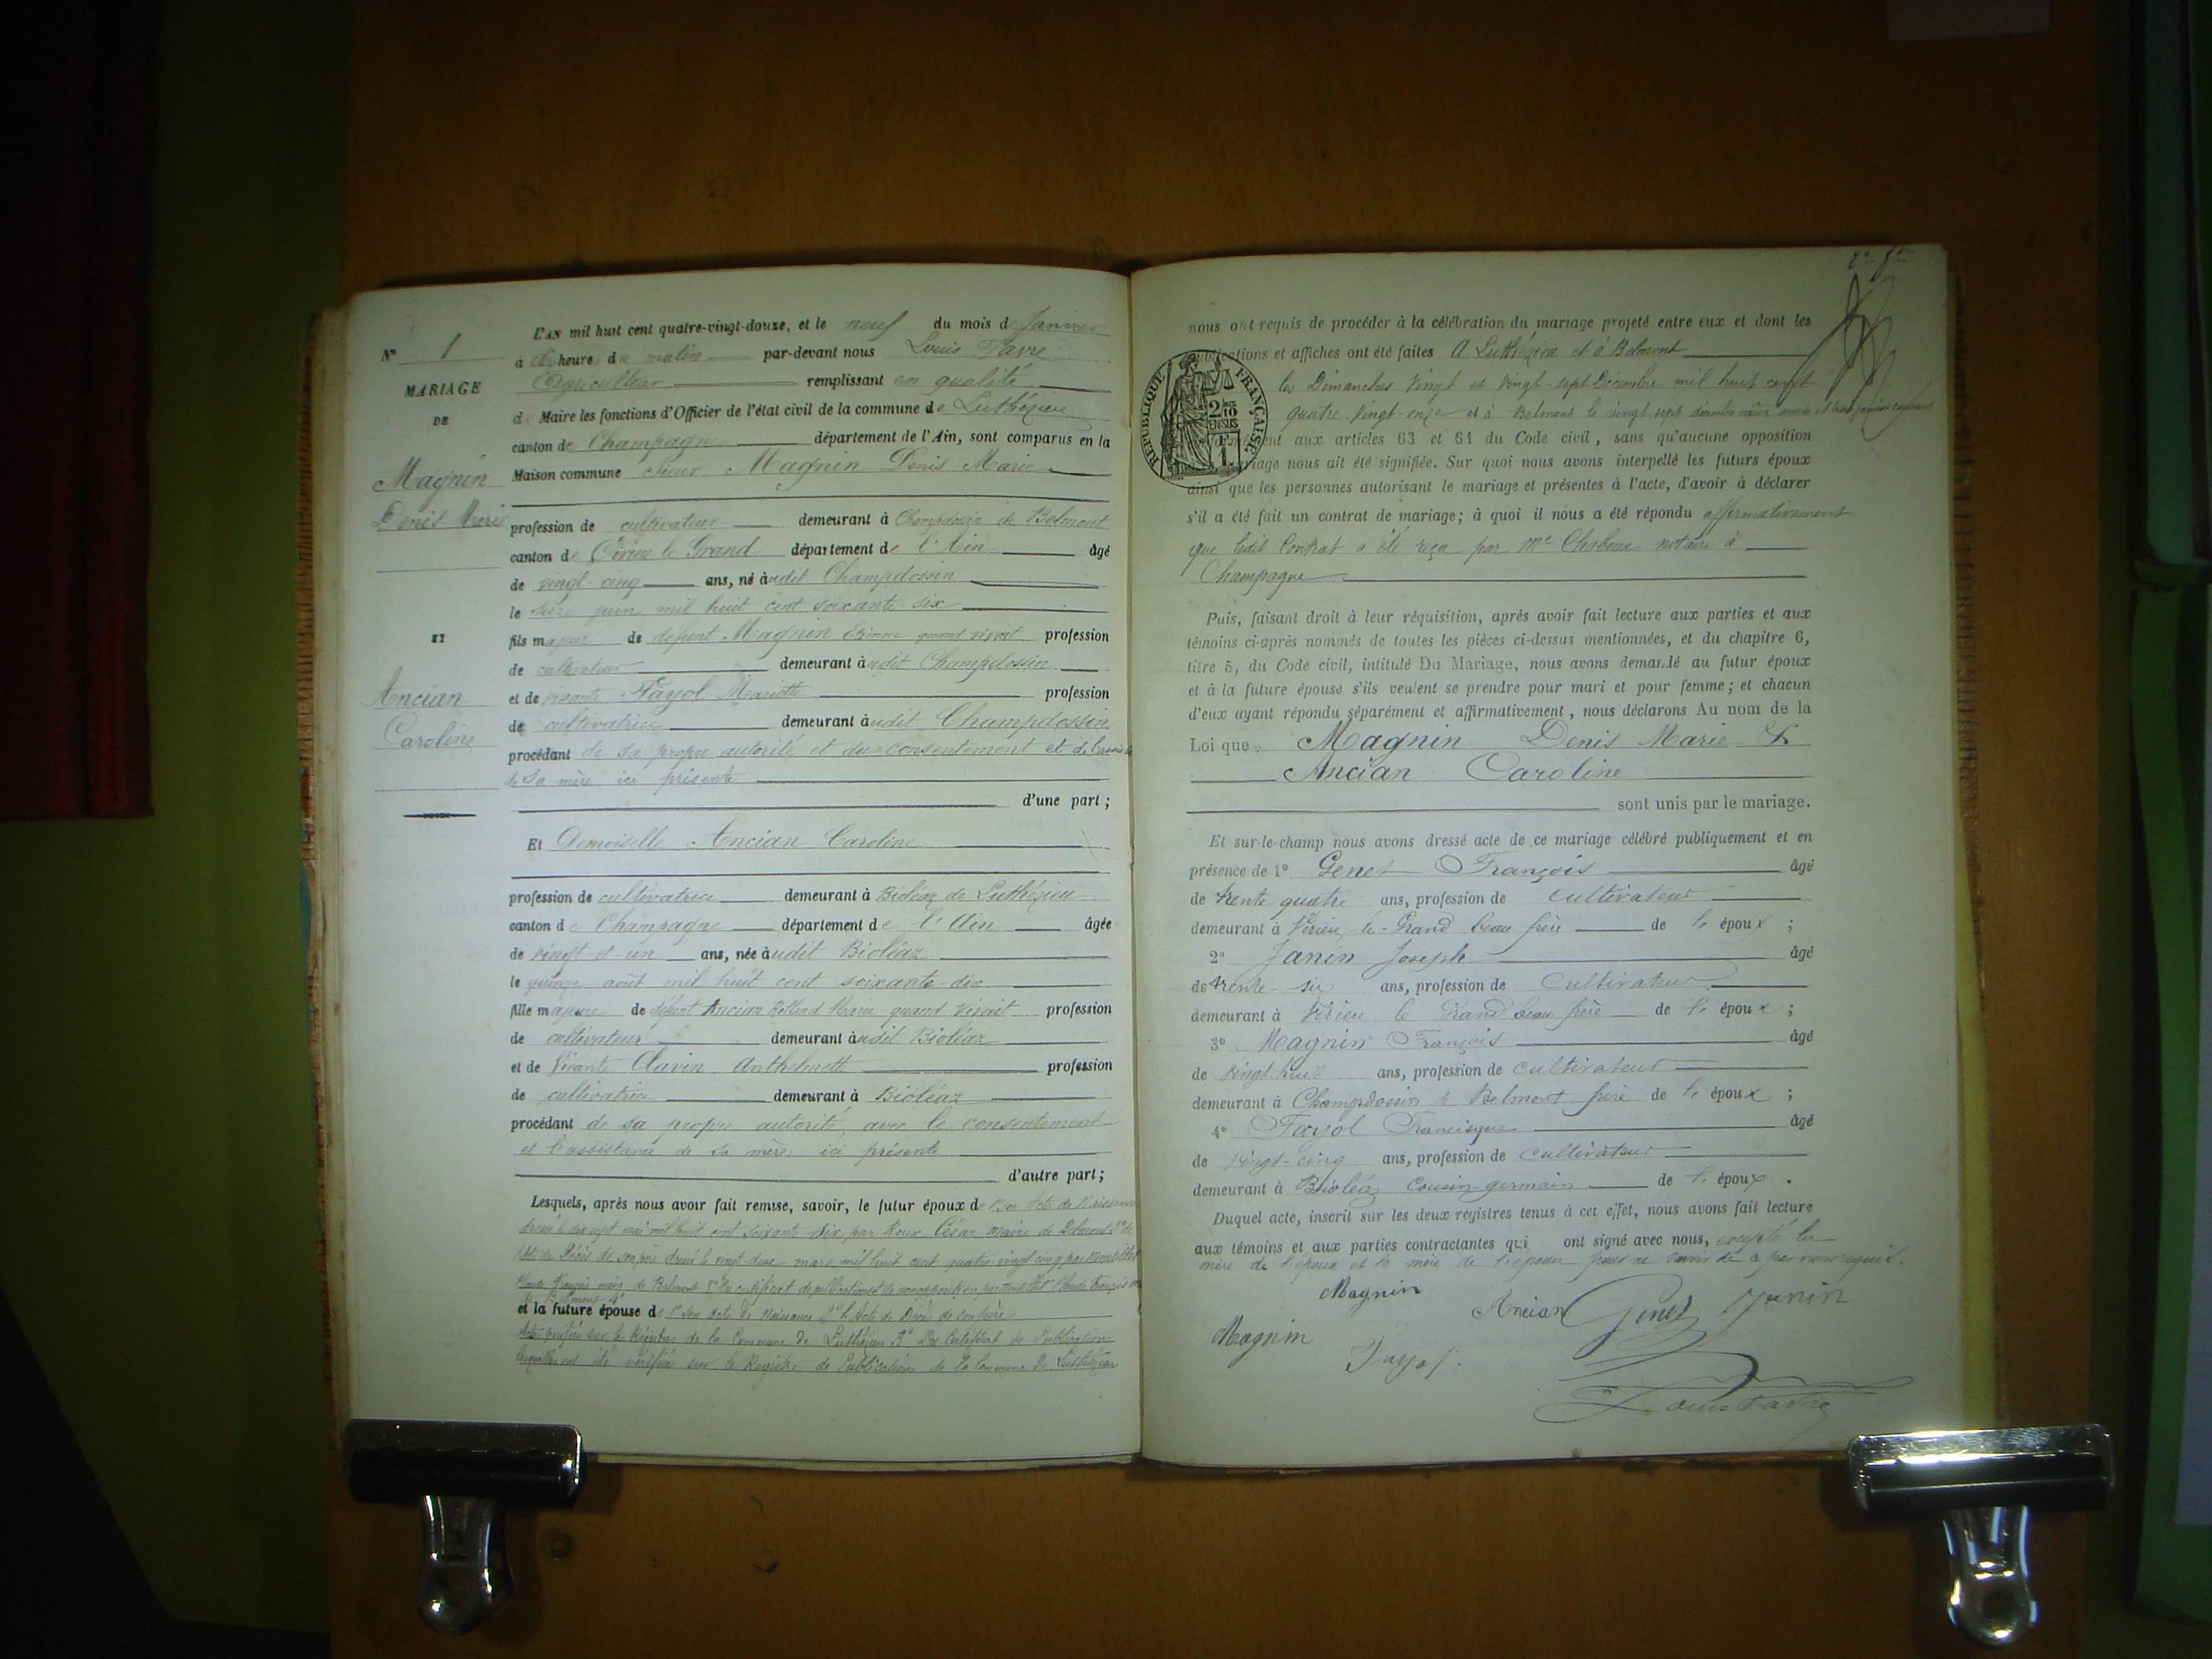 N° 1
MARIAGE
DE
Magnin
Denis Marie
ET
Ancian
Caroline
L'AN mil huit cent quatre-vingt-douze, et le neuf du mois de Janvier
à heure du matin par-devant nous Louis Favre
Agriculteur remplissant en qualité
de Maire les fonctions d'Officier de l'état civil de la commune de Luthézieu
canton de Champagne département de l'Ain, sont comparus en la
Maison commune Sieur Magnin Denis Marie
profession de cultivateur demeurant à Champdossin de Belmont
canton de Virieu le Grand département de l'Ain âgé
de vingt-cinq ans, né audit Champdossin
le juin mil huit cent soixante six
fils majeur de défunt Magnin Etienne quand vivait profession
de cultivateur demeurant audit Champdossin
et de vivante Fayol Mariette profession
de cultivatrice demeurant audit Champdossin
procédant de sa propre autorité et du consentement et de l'assistance
de sa mère ici présente
d'une part ;
Et Demoiselle Ancian Caroline
profession de cultivatrice demeurant à Bioléaz de Luthézieu
canton de Champagne département de l'Ain âgée
de vingt-et-un ans, née audit Bioléaz
le quinze août mil huit cent soixante-dix
fille majeure de défunt Ancian Marie quand vivait profession
de cultivateur demeurant audit Bioléaz
et de Vivante Clavin Anthelmette profession
de cultivatrice demeurant à Bioléaz
procédant de sa propre autorité, avec le consentement
et l'assistance de sa mère ici présente
d'autre part ;
Lesquels, après nous avoir fait remise, savoir, le futur époux de 1° son Acte de Naissance
dressé le dix sept mai mil huit cent soixante six par César maire de Belmont 2° de
l'Acte de Décès de son père dressé le vingt-deux mars mil huit cent quatre vingt cinq par
Claude François maire de Belmont 3° Du certificat de publications et de non opposition Claude François
de Belmont
et la future épouse de 1° son Acte de Naissance 2° l'Acte de Décès de son père
Actes vérifiés sur le Registre de la Commune de Luthézieu 3° Du Certificat de Publication
lesquelles ont été vérifiées sur le Registre de Publications de la Commune de Luthézieu
nous ont requis de procéder à la célébration du mariage projeté entre eux et dont les
publications et affiches ont été faites A Luthézieu et à Belmont
les Dimanches Vingt et Vingt-sept Décembre mil huit cent
quatre Vingt-onze et à Belmont le vingt sept décembre même année et trois janvier
aux articles 63 et 64 du Code civil, sans qu'aucune opposition
mariage nous ait été signifiée. Sur quoi nous avons interpellé les futurs époux
ainsi que les personnes autorisant le mariage et présentes à l'acte, d'avoir à déclarer
s'il a été fait un contrat de mariage ; à quoi il nous a été répondu affirmativement
que ledit Contrat a été reçu par Me notaire à
Champagne
RÉPUBLIQUE FRANÇAISE
2/10
EN SUS
1 F
Puis, faisant droit à leur réquisition, après avoir fait lecture aux parties et aux
témoins ci-après nommés de toutes les pièces ci-dessus mentionnées, et du chapitre 6,
titre 5, du Code civil, intitulé Du Mariage, nous avons demandé au futur époux
et à la future épouse s'ils veulent se prendre pour mari et pour femme ; et chacun
d'eux ayant répondu séparément et affirmativement, nous déclarons Au nom de la
Loi que Magnin Denis Marie &
Ancian Caroline
sont unis par le mariage.
Et sur-le-champ nous avons dressé acte de ce mariage célébré publiquement et en
présence de 1° Genet François âgé
de trente quatre ans, profession de cultivateur
demeurant à Virieu-le-Grand beau frère de l' époux ;
2° Janin Joseph âgé
de trente-six ans, profession de Cultivateur
demeurant à Virieu le Grand beau frère de l' époux ;
3° Magnin François âgé
de vingt-huit ans, profession de cultivateur
demeurant à Champdossin de Belmont frère de l' époux ;
4° Fayol Francisque âgé
de vingt-cinq ans, profession de Cultivateur
demeurant à Bioléaz cousin germain de l' époux.
Duquel acte, inscrit sur les deux registres tenus à cet effet, nous avons fait lecture
aux témoins et aux parties contractantes qui ont signé avec nous, excepté la
mère de l'époux et la mère de l'épouse pour ne savoir de ce par nous requis.
Magnin
Ancian Genet Janin
Magnin Fayol
Louis Favre